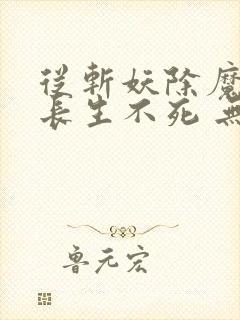 從斬妖除魔
長生不死 無
魯元宏